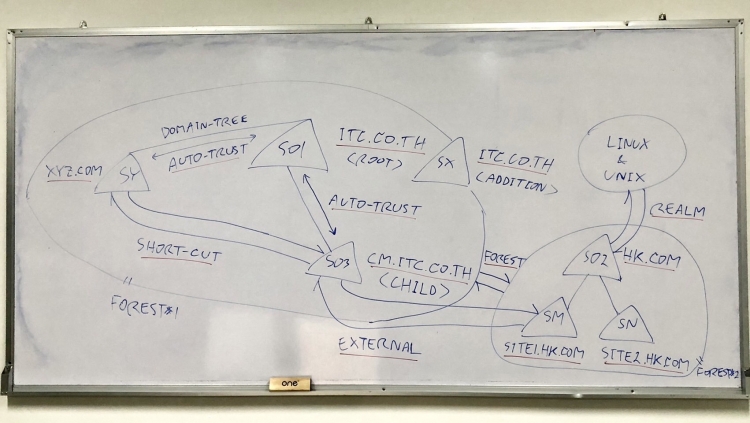 DOMAIN-TREE
AUTO-TRUST
XYZ.COM
SY
SO1
ITC.CO.TH
(ROOT)
SX
ITC.CO.TH
(ADDITION)
LINUX
&
UNIX
REALM
AUTO-TRUST
SHORT-CUT
SO3
CM.ITC.CO.TH
(CHILD)
FOREST
SO2
HK.COM
FOREST#1
EXTERNAL
SM
SN
SITE1.HK.COM
SITE2.HK.COM
FOREST#2
one